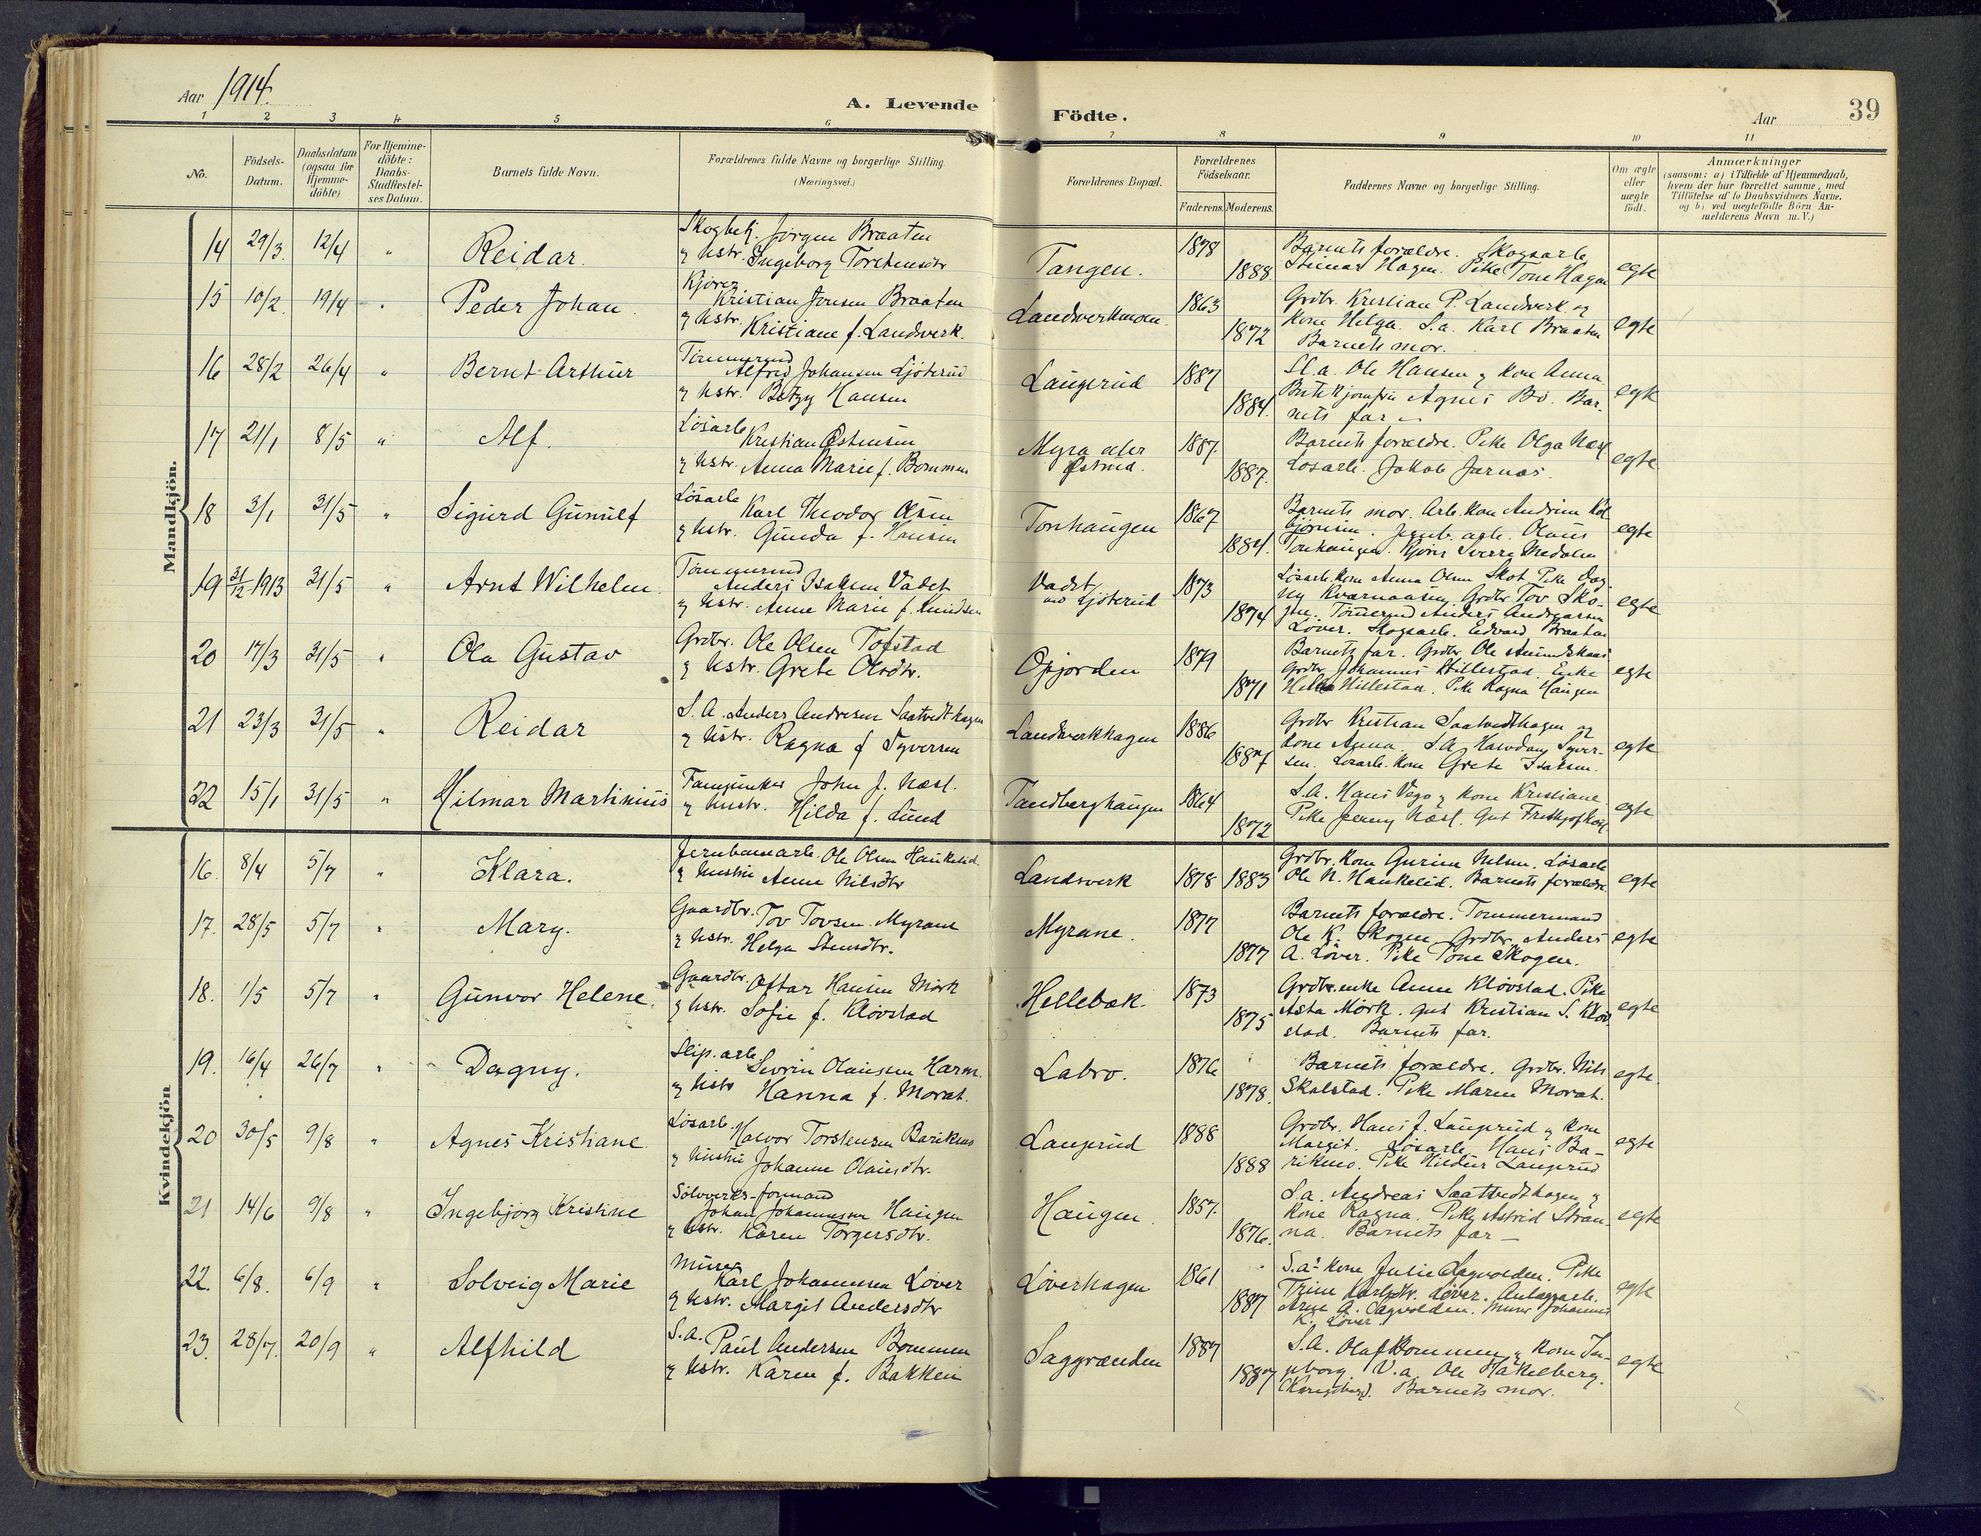 Aar 1914.
A. Levende Födte.
Aar
39
1 2 3 4 5 6 7 8 9 10 11
No.
Födsels-Datum.
Daabsdatum (ogsaa for Hjemmedöbte)
For Hjemmedöbte: Daabs-Stadfestelses Datum.
Barnets fulde Navn.
Forældrenes fulde Navne og borgerlige Stilling. (Næringsvei.)
Forældrenes Bopæl.
Forældrenes Födselsaar.
Faderens. Moderens.
Faddernes Navne og borgerlige Stilling.
Om ægte eller uægte födt.
Anmærkninger
(saasom: a) i Tilfælde af Hjemmedaab, hvem der har forrettet samme, med Tilföielse af to Daabsvidners Navne, og b) ved uægtefödte Börn Anmelderens Navn m. V.)
Mandkjön.
14 29/3. 12/4 " Reidar.
Skogbek. Jørgen Braaten
& hstr. Ingeborg
Tangen. 1878 1888
Barnets forældre. Skogsarb.
Hagen. Pike Tone Hagen
egte
15 10/2. 19/4 " Peder Johan.
Kjører
Kristian Jonsen Braaten
& hstr. Kristiane f. Landverk.
Landverkmoen. 1863 1872
Grdbr. Kristian P. Landverk og
kone Helga. S.a. Karl Braaten
Barnets mor.
egte
16 28/2 26/4 " Bernt Arthur
Tømmermd
Alfred Johansen Ljøterud
& hstr. Betzy Hansen
Laugerud 1887 1884.
S.a. Ole Hansen & kone Anna
Agnes Bø. Bar-
nets far
egte
17 21/1 8/5 " Alf.
Løsarb
Kristian Østensen
& hstr. Anna Marie f. Bommen
Myra 1887. 1887.
Barnets forældre. Pike Olga Næsl
Løsarb. Jakob Jarnæs.
egte
18 3/1 31/5 " Sigurd Gunulf
Løsarb
Karl Theodor Olsen
& hstr. Gunda f. Hansen
Tonhaugen 1867 1884.
Barnets mor. Arb. kone Andrine Kol
bjørnsen. Jernb. arb. Olaus
Tonhaugen. Kjører Sverre Medalen
egte
19 31/12 1913 31/5 " Arnt Wilhelm.
Tømmermd
Anders Isaksen Vadet
& hstr. Anne Marie f. Knudsen
Vadet
Ljøterud 1873 1874
Løsarb. kone Anna Olsen Skot. Pike Dag
ny Kværnaasen. Grdbr. Tov Sko-
gen. Tømmermd Anders Andreassen
Løver. Skogsarb. Edvard Braaten
egte
20 17/3 31/5 " Ola Gustav
Grdbr. Ole Olsen Tofstad
& hstr. Grete Olsdtr.
Opjorden 1879 1871
Barnets far. Grdbr. Ole
Grdbr. Johannes Hillestad. Enke
Hillestad. Pike Ragna Haugen
egte
21 23/3 31/5 " Reidar
S.A. Anders Andresen Saatvedthagen
& hstr. Ragna f Syversen
Landverkhagen 1886 1887
Grdbr Kristian Saatvedthagen og
kone Anna. S.A. Syver-
sen. Løsarb. kone Grete Isaksen.
egte
22 15/1 31/5 " Hilmar Martinius
John J. Næsl.
& hustr. Hilda f. Lund
Tandberghaugen 1864 1872
S.A. Hans Vego & kone Kristiane.
Pike Jenny Næsl. Gut
egte
Kvindekjön
16. 8/4 5/7 " Klara.
Jernbanearb. Ole Olsen Haukelid.
& hustru Anne Nilsdtr
Landsverk 1878 1883
Grdbr. kone Gurine Nilsen. Løsarb
Ole N. Haukelid. Barnets forældre
egte
17. 28/5 5/7 " Mary.
Gaardbr. Tov Tovsen Myrane
& hstr. Helga Stensdtr.
Myrane. 1877 1877
Barnets forældre. Tømmermand
Ole K. Skogen Grdbr. Anders
A. Løver. Pike Tone Skogen.
egte
18. 1/5 5/7 " Gunvor Helene.
Gaardbr. Oftar Hansen Mørk
& hstr. Sofie f. Kløvstad
Hellebæk. 1873 1875
Grdbr.enke Anne Kløvstad. Pike
Asta Mørk. Gut Kristian S. Kløv
stad. Barnets far.
egte
19. 16/4 26/7 " Dagny.
Slip. arb.
Sevrin Olaussen Harm.
& hstr Hanna f. Morat.
Labro. 1876 1878.
Barnets forældre. Grdbr. Nils
Skalstad. Pike Maren Morat.
egte.
20 30/5 9/8 " Agnes Kristiane
Løsarb.
Halvor Torstensen Barikmo
& hustru Johanne Olausdtr.
Laugerud 1888 1888
Grdbr. Hans J. Laugerud & kone
Margit. Løsarb. Hans Ba-
rikmo. Pike Hildur Laugerud
egte
21 14/6 9/8 " Ingebjørg Kristine
Sølvverks-formand
Johan Johannesen Haugen
& hstr. Karen Torgersdtr.
Haugen. 1857. 1876.
S.a. Andreas Saatvedthagen &
kone Ragna. Pike Astrid Stran
na. Barnets far
egte
22. 6/8. 6/9 " Solveig Marie
Murer
Karl Johannesen Løver
& hstr. Margit Andersdtr
Løverhagen 1861 1887
S.a. kone Julie Sagvolden. Pike
Trine Karlsdtr. Løver. Anlægsarb.
Arne A. Sagvolden. Murer Johannes
K. Løver.
egte
23. 28/7. 20/9 " Alfhild
S.a. Paul Andersen Bommen
& hstr. Karen f. Bakken
Saggrænden 1887 1887
S.A. Olaf Bommen & kone In-
geborg. V.a. Ole Hakelberg.
(Kongsberg). Barnets mor.
egte